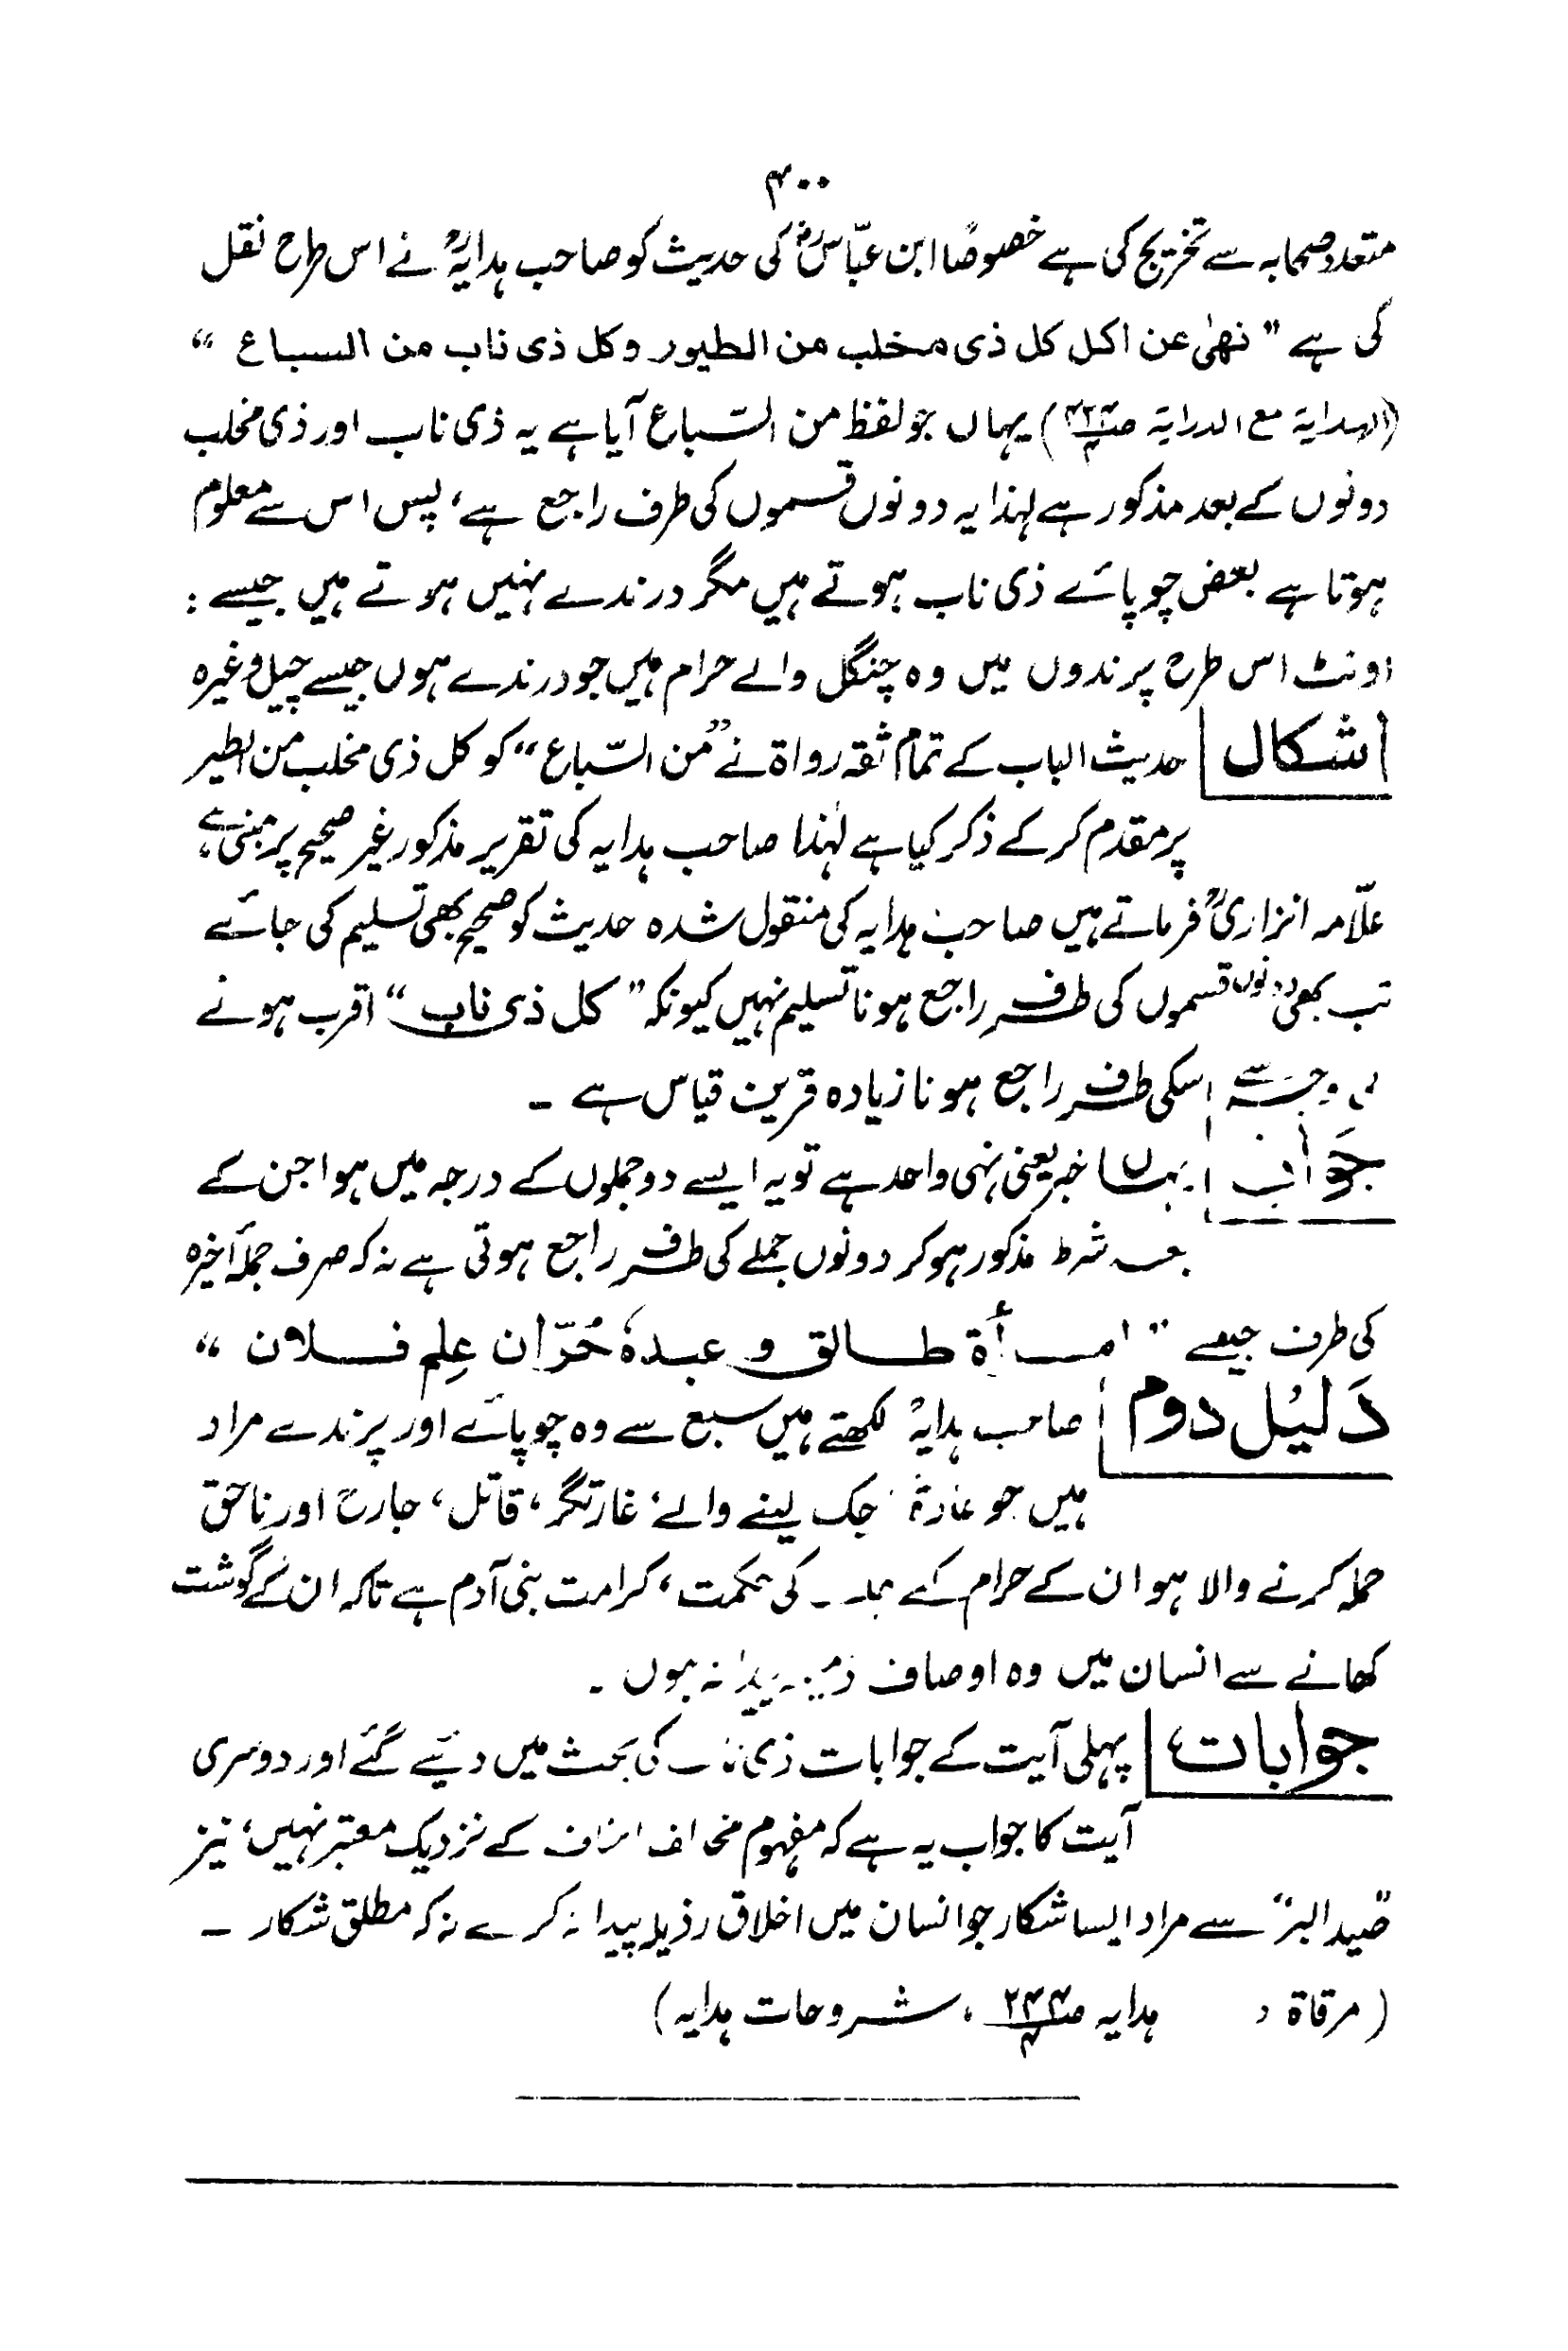 ۴۰۰
متعدد صحابہ سے تخریج کی ہے خصوصًا ابن عبّاسؓ کی حدیث کو صاحب ہدایہؒ نے اس طرح نقل
کی ہے ” نھیٰ عن اکل کل ذی مخلب من الطیور وکل ذی ناب من السباع “
(الہدایۃ مع الدرایۃ) یہاں جو لفظ من السّباع آیا ہے یہ ذی ناب اور ذی مخلب
دونوں کے بعد مذکور ہے لہذا یہ دونوں قسموں کی طرف راجع ہے، پس اس سے معلوم
ہوتا ہے بعض چوپائے ذی ناب ہوتے ہیں مگر درندے نہیں ہوتے ہیں جیسے :
اونٹ اس طرح پرندوں میں وہ چنگل والے حرام ہیں جو درندے ہوں جیسے چیل وغیرہ
اشکال حدیث الباب کے تمام ثقہ رواۃ نے ”من السّباع“ کو کل ذی مخلب من الطیر
پر مقدم کر کے ذکر کیا ہے لہٰذا صاحب ہدایہ کی تقریر مذکور غیر صحیح پر مبنی ہے،
علّامہ انزاریؒ فرماتے ہیں صاحب ہدایہ کی منقول شدہ حدیث کو صحیح بھی تسلیم کی جائے
تب بھی دونوں قسموں کی طرف راجع ہونا تسلیم نہیں کیونکہ ” کل ذی ناب “ اقرب ہونے
وجہ سے اسکی طرف راجع ہونا زیادہ قرین قیاس ہے ۔
جَواب یہاں خبر یعنی نہی واحد ہے تو یہ ایسے دو جملوں کے درجہ میں ہوا جن کے
بعد شرط مذکور ہو کر دونوں جملے کی طرف راجع ہوتی ہے نہ کہ صرف جملۂ اخیرہ
کی طرف جیسے ” امرأۃ طالق و عبدہٗ حُرّ ان عِلم فلان “
دَلیُل دوم صاحب ہدایہؒ لکھتے ہیں سبع سے وہ چوپائے اور پرندے مراد
ہیں جو عادۃً اچک لینے والے، غارتگر، قاتل، جارح اور ناحق
حملہ کرنے والا ہو ان کے حرام کی حکمت، کرامت بنی آدم ہے تاکہ ان کے گوشت
کھانے سے انسان میں وہ اوصاف ذمیمہ پیدا نہ ہوں ۔
جوابات پہلی آیت کے جوابات ذی ناب کی بحث میں دیئے گئے اور دوسری
آیت کا جواب یہ ہے کہ مفہوم مخالف احناف کے نزدیک معتبر نہیں، نیز
”صید البر“ سے مراد ایسا شکار جو انسان میں اخلاق رذیلہ پیدا نہ کرے نہ کہ مطلق شکار ۔
( مرقاۃ ، ہدایہ ص۴۴۲/۴ ، شروحات ہدایہ)